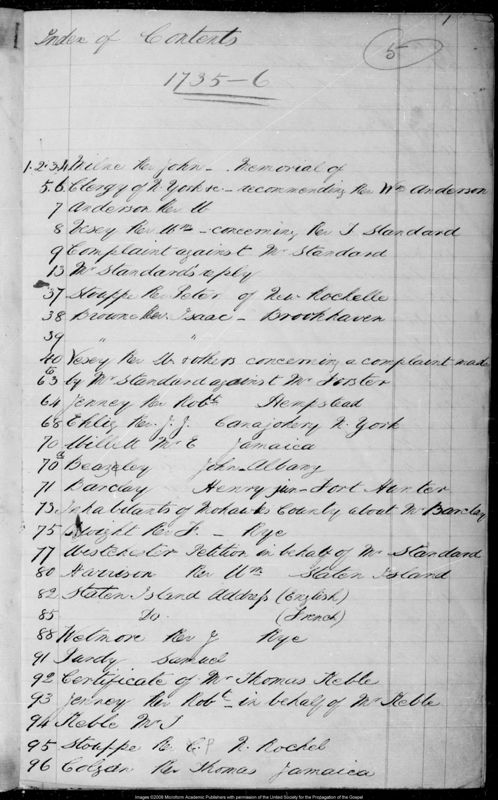 1
Index of Contents
5
1735-6
1.2.3.4 Milne Rev John - . Memorial of
5.6 Clergy of N York &c - recommending Rev Wm Anderson
7 Anderson Rev W
8 Vesey Rev Wm - concerning Rev T. Standard
9 Complaint against Mr Standard
13 Mr Standard's reply
37 Stouppe Rev Peter of New Rochelle
38 Browne Rev. Isaac - Brookhaven
39 " "
40 Vesey Rev W. & others concerning a complaint made
to
63 by Mr Standard against Mr Forster
64 Jenney Rev Robt Hempstead
68 Ehlig Rev. J. J. Canajohery N. York
70 Willett Mr E Jamaica
70b Beazeley John Albany
71 Barclay Henry jun - Fort Hunter
73 Inhabitants of Mohawks County about Mr Barclay
75 Dwight Rev F. - Rye
77 Westchester Petition in behalf of Mr Standard
80 Harrison Rev Wm Staten Island
82 Staten Island Address (English)
85 Do. (French)
88 Wetmore Rev J Rye
91 Purdy Samuel
92 Certificate of Mr Thomas Keble
93 Jenney Rev Robt - in behalf of Mr Keble
94 Keble Mr J
95 Stouppe Re P N. Rochel
96 Colgan Rev Thomas Jamaica
Images ©2006 Microform Academic Publishers with permission of the United Society for the Propagation of the Gospel